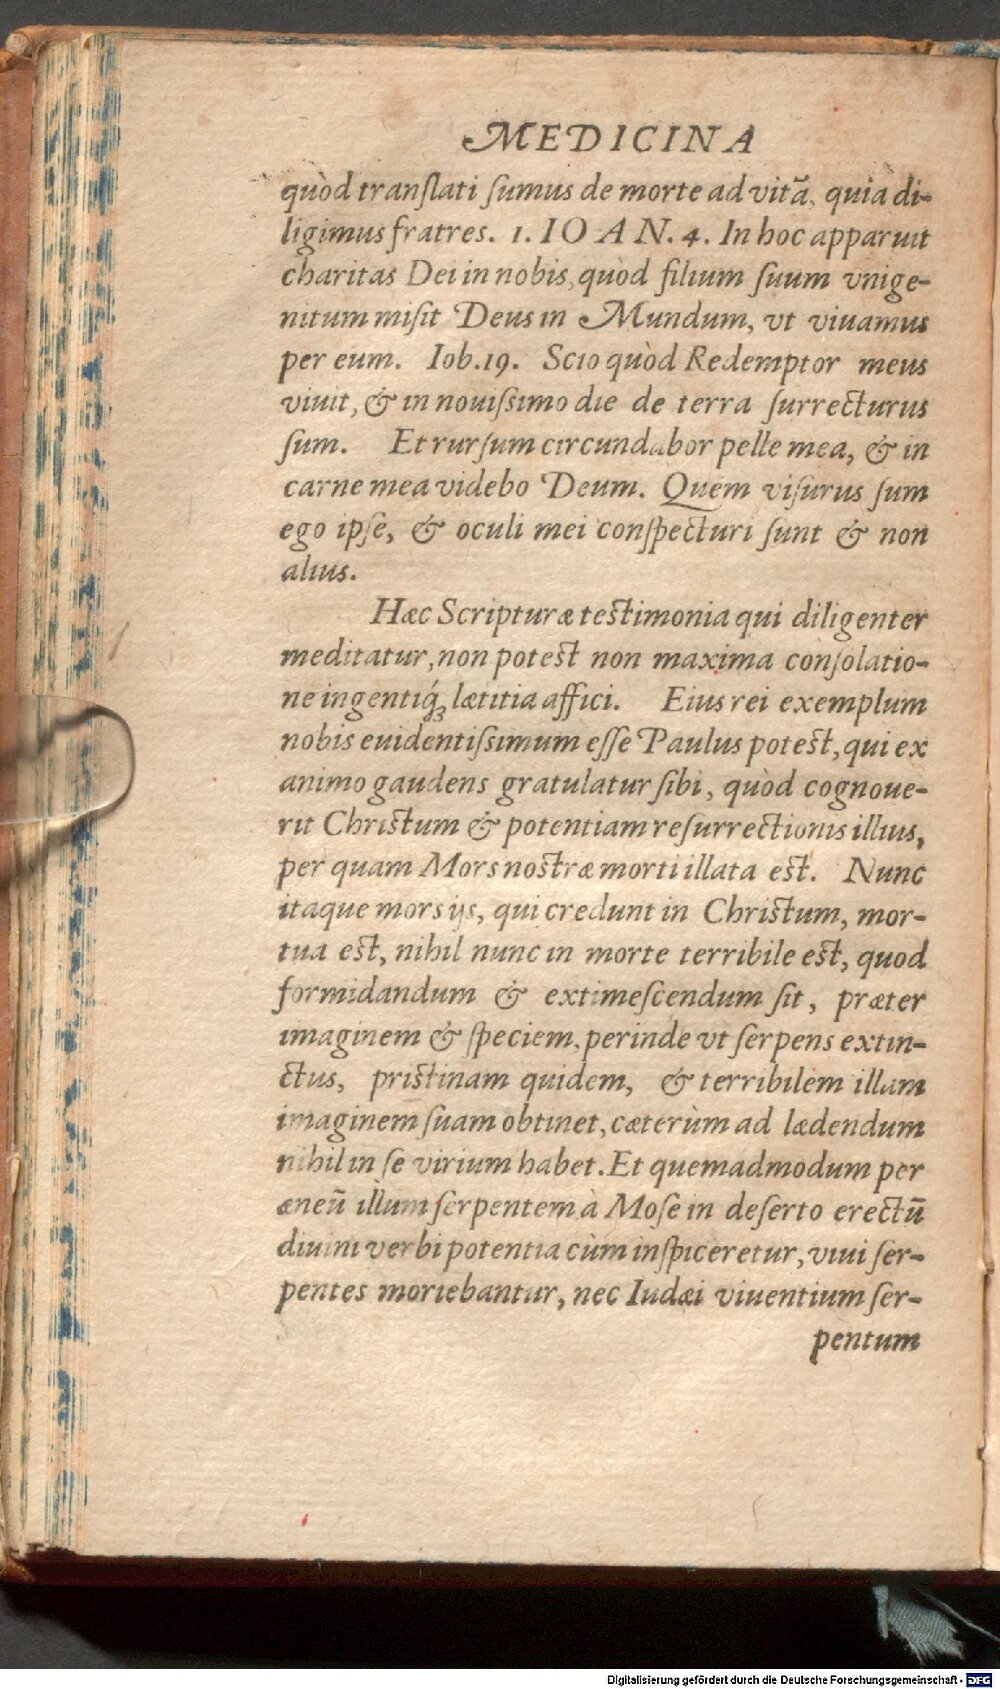 MEDICINA
quòd translati sumus de morte ad vitā, quia di-
ligimus fratres. 1. IOAN. 4. In hoc apparuit
charitas Dei in nobis, quòd filium suum vnige-
nitum misit Deus in Mundum, vt viuamus
per eum. Iob. 19. Scio quòd Redemptor meus
viuit, & in nouissimo die de terra surrecturus
sum. Et rursum circundabor pelle mea, & in
carne mea videbo Deum. Quem visurus sum
ego ipse, & oculi mei conspecturi sunt & non
alius.
Hæc Scripturæ testimonia qui diligenter
meditatur, non potest non maxima consolatio-
ne ingentiq́ꝫ lætitia affici. Eius rei exemplum
nobis euidentissimum esse Paulus potest, qui ex
animo gaudens gratulatur sibi, quòd cognoue-
rit Christum & potentiam resurrectionis illius,
per quam Mors nostræ morti illata est. Nunc
itaque mors ijs, qui credunt in Christum, mor-
tua est, nihil nunc in morte terribile est, quod
formidandum & extimescendum sit, præter
imaginem & speciem, perinde vt serpens extin-
ctus, pristinam quidem, & terribilem illam
imaginem suam obtinet, cæterùm ad lædendum
nihil in se virium habet. Et quemadmodum per
æneū illum serpentem à Mose in deserto erectū
diuini verbi potentia cùm inspiceretur, viui ser-
pentes moriebantur, nec Iudæi viuentium ser-
pentum
Digitalisierung gefördert durch die Deutsche Forschungsgemeinschaft - DFG